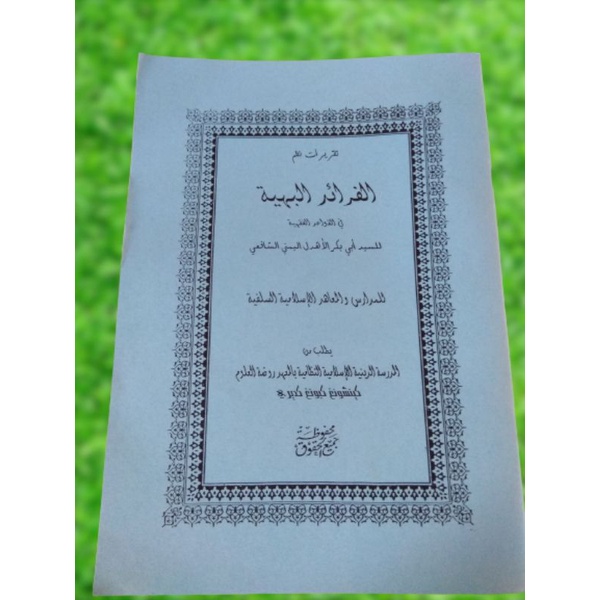 تقريرات نظم
الفرائد البهية
في القواعد الفقهية
للسيد أبي بكر الأهدل اليمني الشافعي
للمدارس والمعاهد الإسلامية السلفية
يطلب من
المدرسة الدينية الإسلامية النظامية بالمعهد روضة العلوم
كينشونغ كبونغ كديري
جميع الحقوق
محفوظة